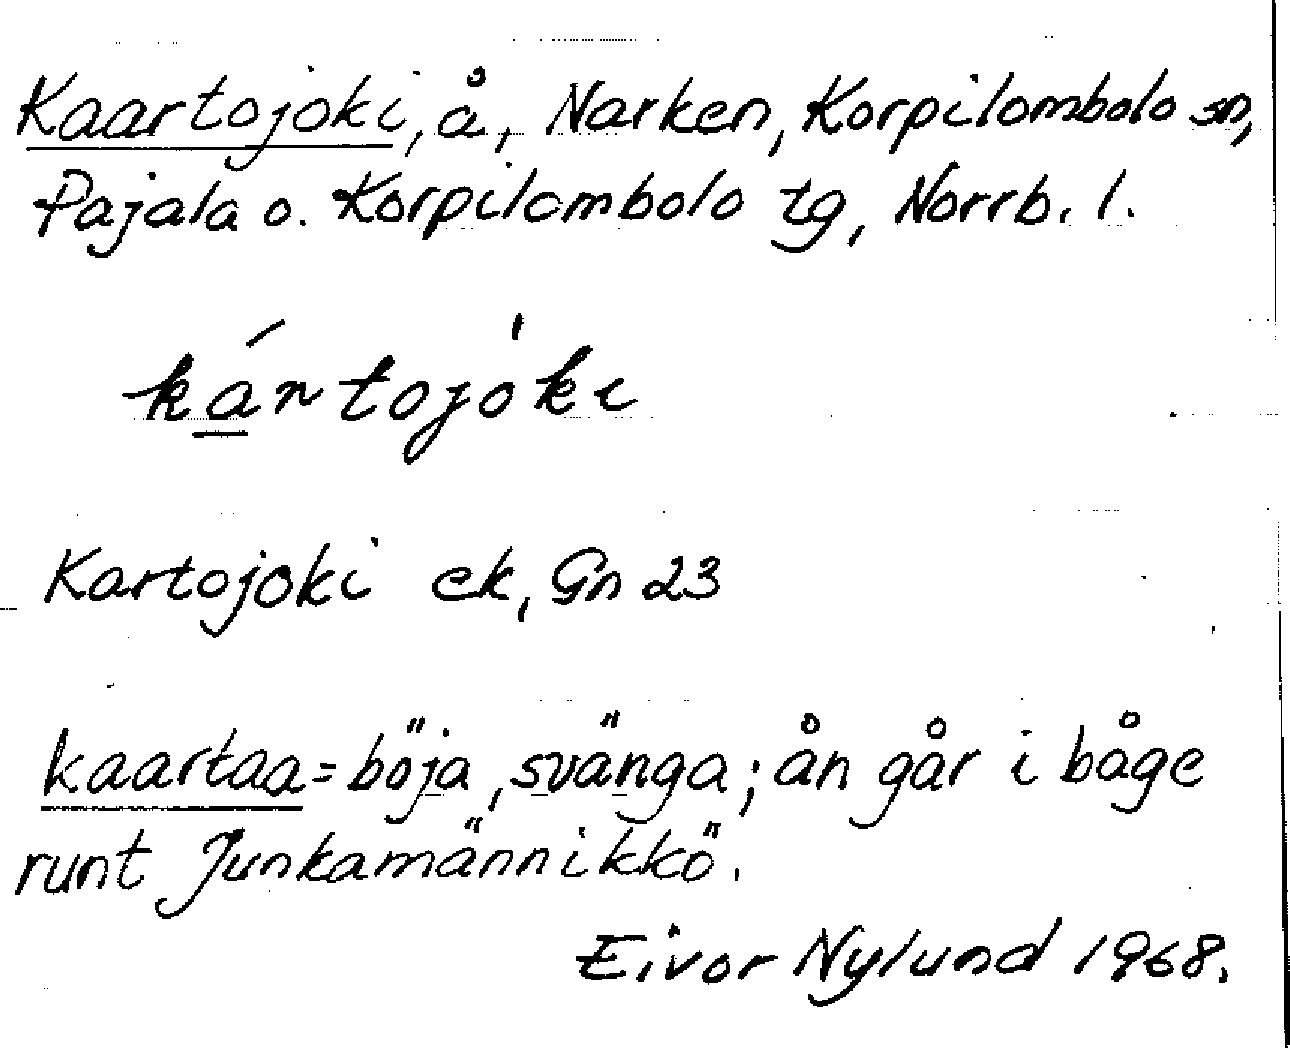 Kaartojoki, å, Narken, Korpilombolo sn,
Pajala o. Korpilombolo tg, Norrb. l.
kártojòki
Kartojoki ek, Gn 23
kaartaa = böja, svänga; ån går i båge
runt Junkamännikkö.
Eivor Nylund 1968.